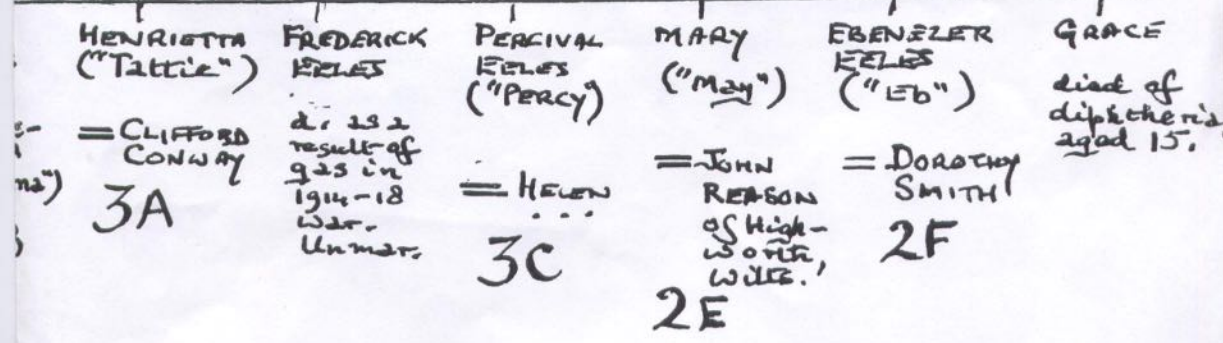 HENRIETTA
("Tattie")
= CLIFFORD
CONWAY
3A
FREDERICK
EELES
d. as a
result of
gas in
1914-18
war.
Unmar.
PERCIVAL
EELES
("PERCY")
= HELEN
...
3C
MARY
("May")
= JOHN
REASON
of High-
worth,
Wilts.
2E
EBENEZER
EELES
("Eb")
= DOROTHY
SMITH
2F
GRACE
died of
diphtheria
aged 15.